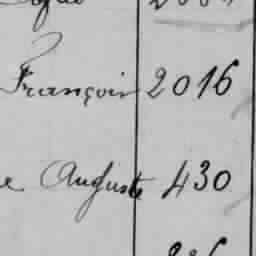 François 2016
e Auguste 430